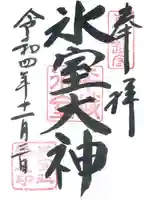 奉拝
氷室大神
令和四年十一月三日